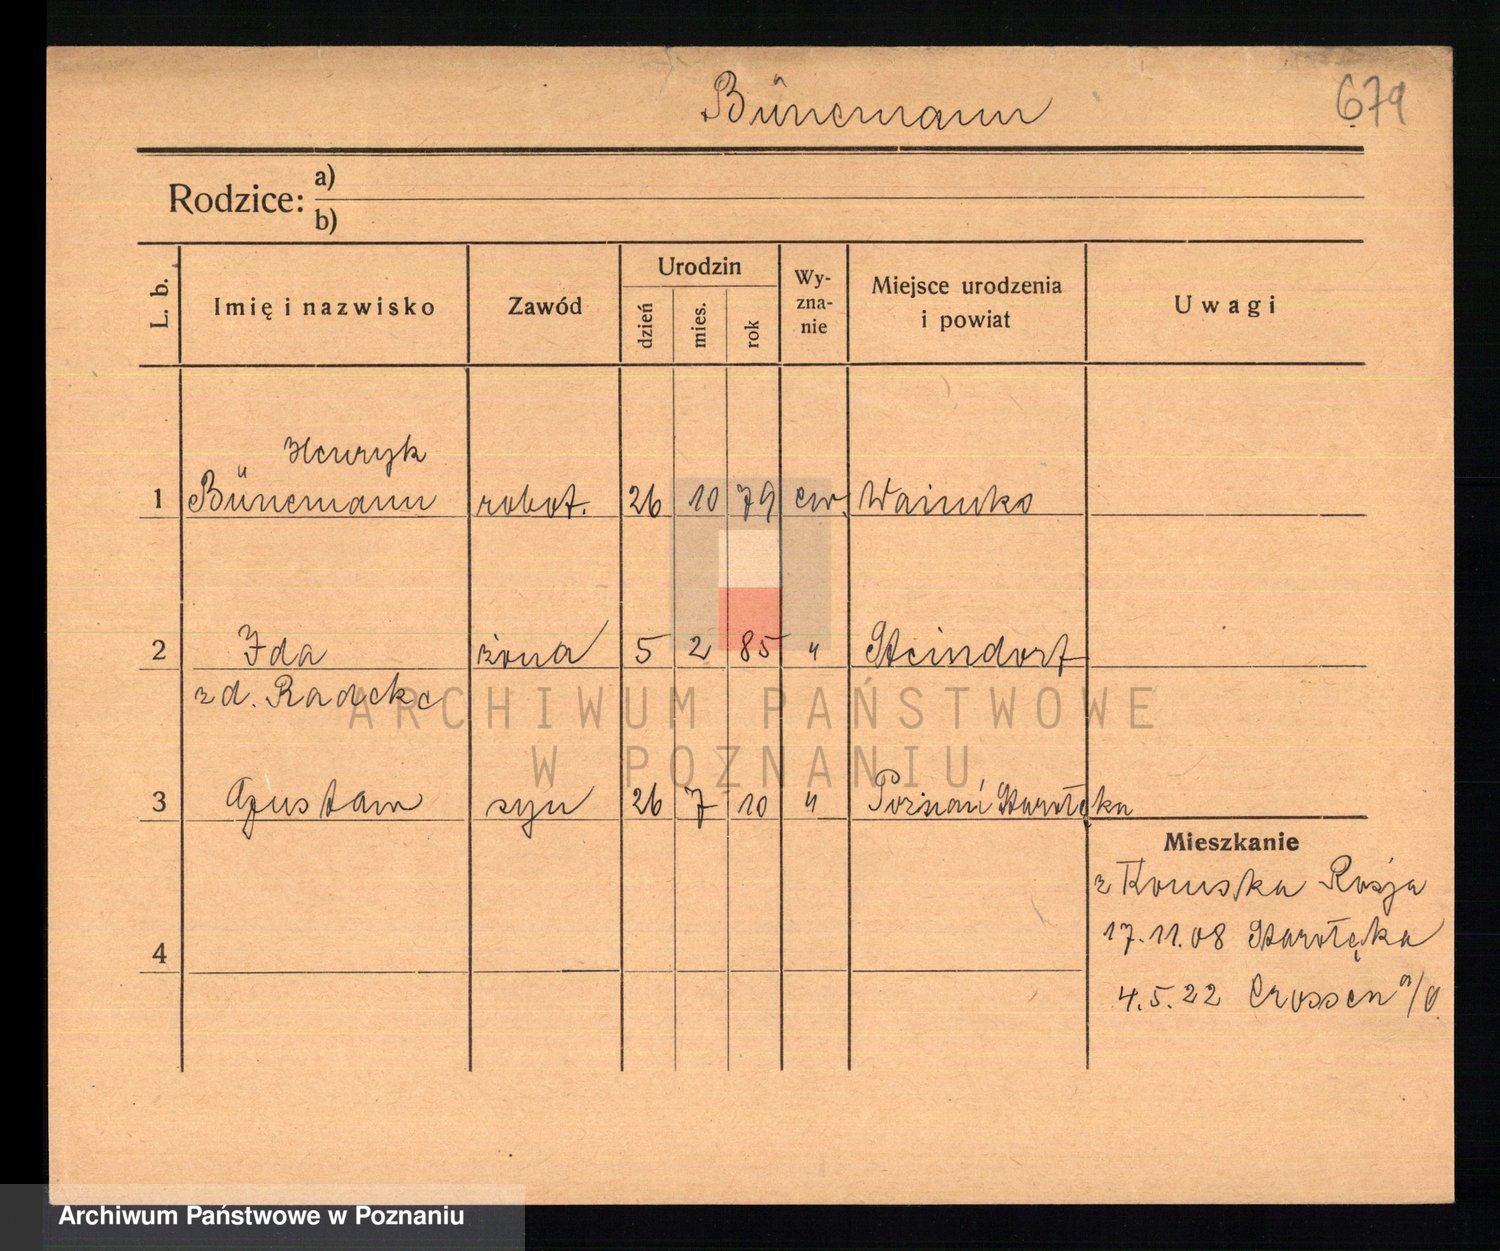 Bünemann
679
Rodzice: a)
b)
L. b.
Imię i nazwisko
Zawód
Urodzin
dzień
mies.
rok
Wy-
zna-
nie
Miejsce urodzenia
i powiat
Uwagi
Henryk
1 Bünemann robot. 26 10 79 ew.
2 Ida żona 5 2 85 " Steindorf
zd. Radeke
3 Gustaw syn 26 7 10 " Poznań Starołęka
Mieszkanie
z Rosja
17.11.08 Starołęka
4
4.5.22 Crossen a/O.
ARCHIWUM PAŃSTWOWE
W POZNANIU
Archiwum Państwowe w Poznaniu